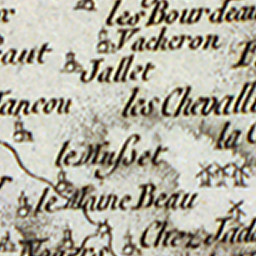 les Bourdeau
Vacheron
Jallet
les Chevall
la C
le Musset
le Maine Beau
Chez Jad